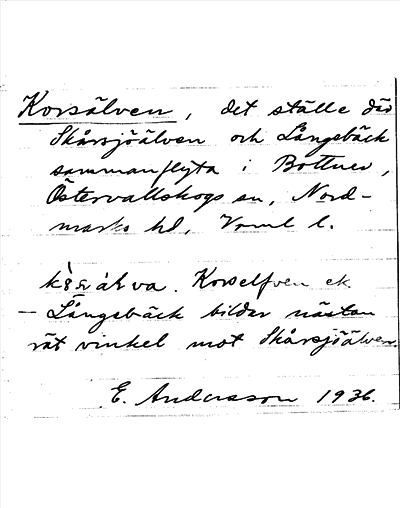 Korsälven, det ställe där
Skårsjöälven och Långsbäck
sammanflyta i Bottnev,
Östervallskogs sn, Nord-
marks hd, Vrml l.
Korselfven ek.
- Långsbäck bildar nästan
rät vinkel mot Skårsjöälven.
E. Andersson 1936.